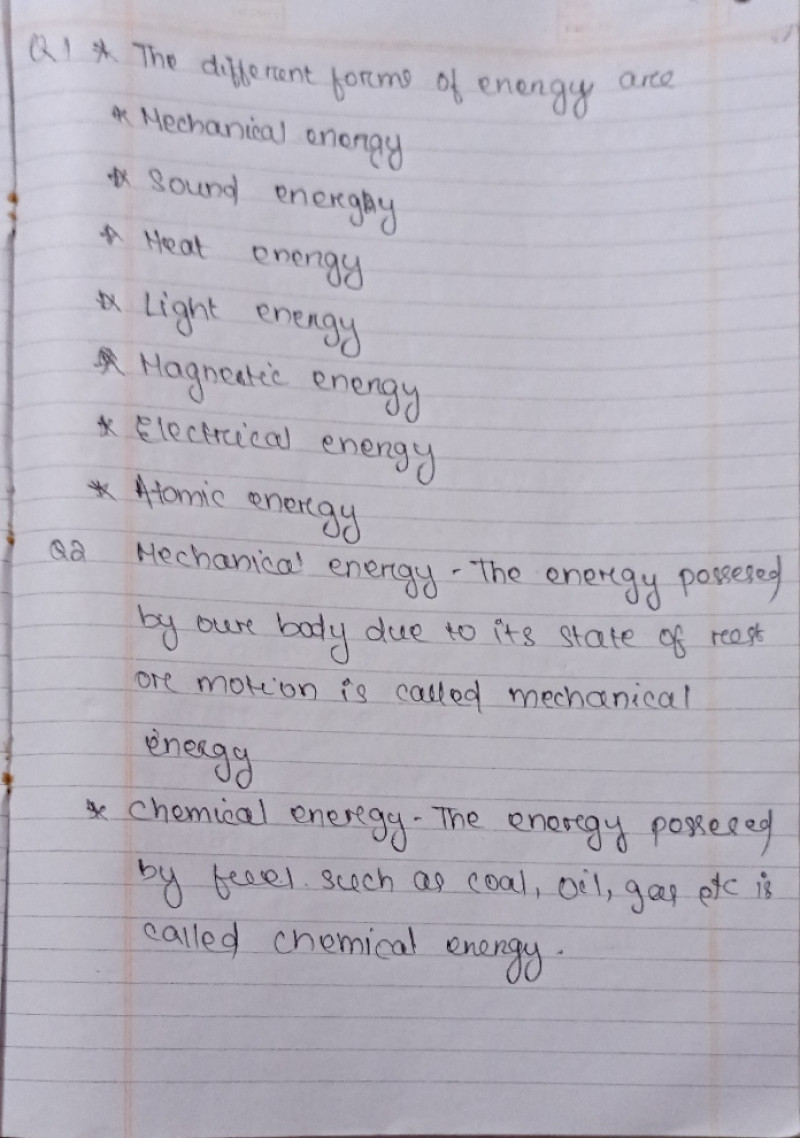 Q1 * The different forms of energy are
* Mechanical energy
* Sound energy
* Heat energy
* Light energy
* Magnetic energy
* Electrical energy
* Atomic energy
Q2 Mechanical energy - The energy possesed
by oure body due to its state of rest
ore motion is called mechanical
energy
* Chemical eneregy - The energy possesed
by feuel such as coal, oil, gas etc is
called chemical energy.